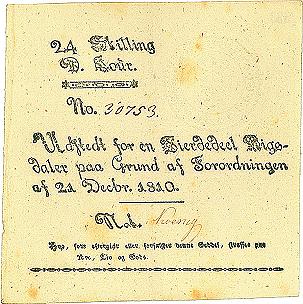 24 Skilling
D. Cour.
No. 30753.
Udstedt for en Fierdedeel Rigs-
daler paa Grund af Forordningen
af 21 Decbr. 1810.
Hvo, som eftergiør eller forfalsker denne Seddel, straffes paa
Ære, Liv og Gods.